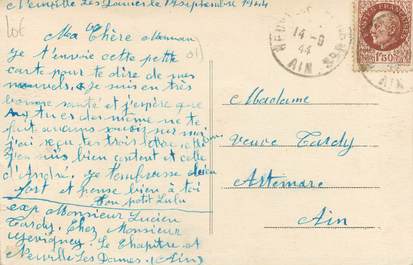 Neuville Les Dames le 14 septembre 1944
Ma Chère Maman
Je t'envoie cette petite
carte pour te dire de mes
nouvels. Je suis en très
bonne santé et j'espère que
tu es de même ne te
fait aucuns soucis sur moi
j'ai reçu tes trois
j'en suis bien content et cette
d'André. Je t'embrasse bien
fort et pense bien à toi
Ton petit Lulu
exp Monsieur Lucien
Tardy. Chez Monsieur
Gevigney. Le Chapitre et
Neuville Les Dames. (Ain)
14-9
44
AIN.
1F50
Madame
veuve Tardy
Artemare
Ain